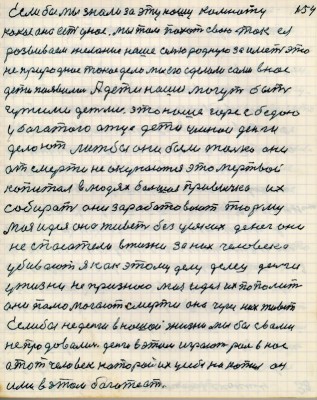 Если бы мы знали за эту нашу комнату 154
какая она есть у нас, мы там такот свою так ея
развиваем желание наше самородную заиметь это
не природное такое дело мы его сделали сами в нас
дети появились А дети наши могут быть
чужими детьми. это наше горе с бедою
у богатого отца дети ценной деньги
делают лиж бы они были только они
от смерти не окупаются это мертвой
капитал в людях большая привычка их
собирать они зарабатывают тюрму
Моя идея она живет без усяких денег они
не спасатели в жизни за них человека
убивают я как этому делу делец деньги
у жизни не признаю моя идея их топит
они помогают смерти она через них живет
Если бы не деньги в нашой жизни мы бы с вами
не продовали. деньги в этом играют рол в нас
а тот человек которой их у себя накопил он
ими в этом богатеет.